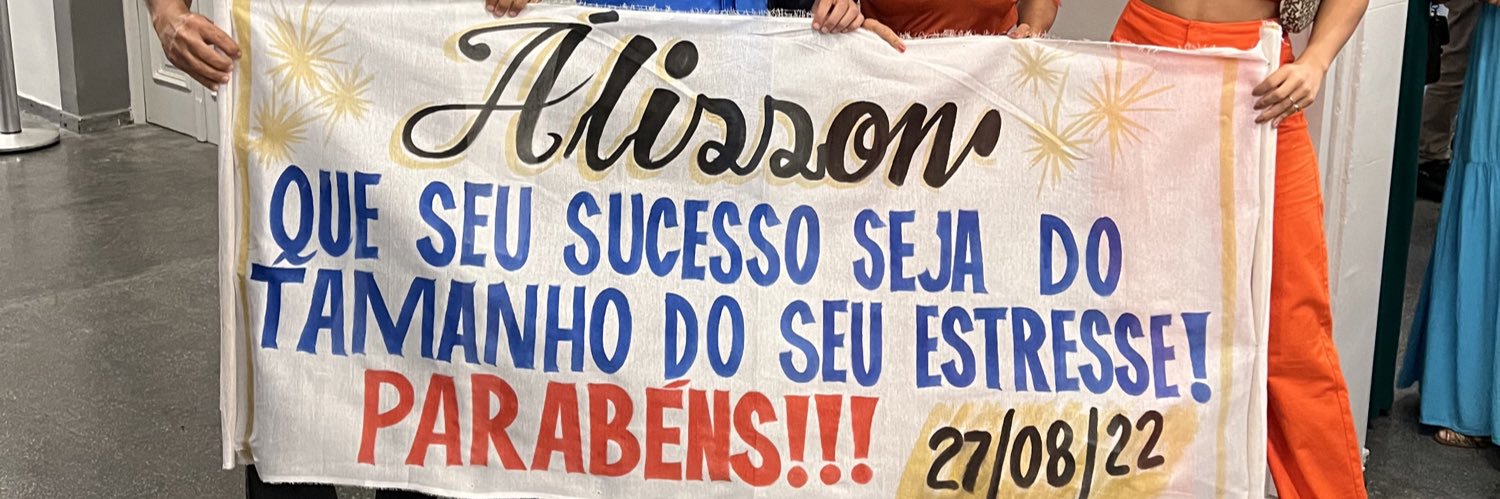 Álisson
QUE SEU SUCESSO SEJA DO
TAMANHO DO SEU ESTRESSE!
PARABÉNS!!!
27/08/22